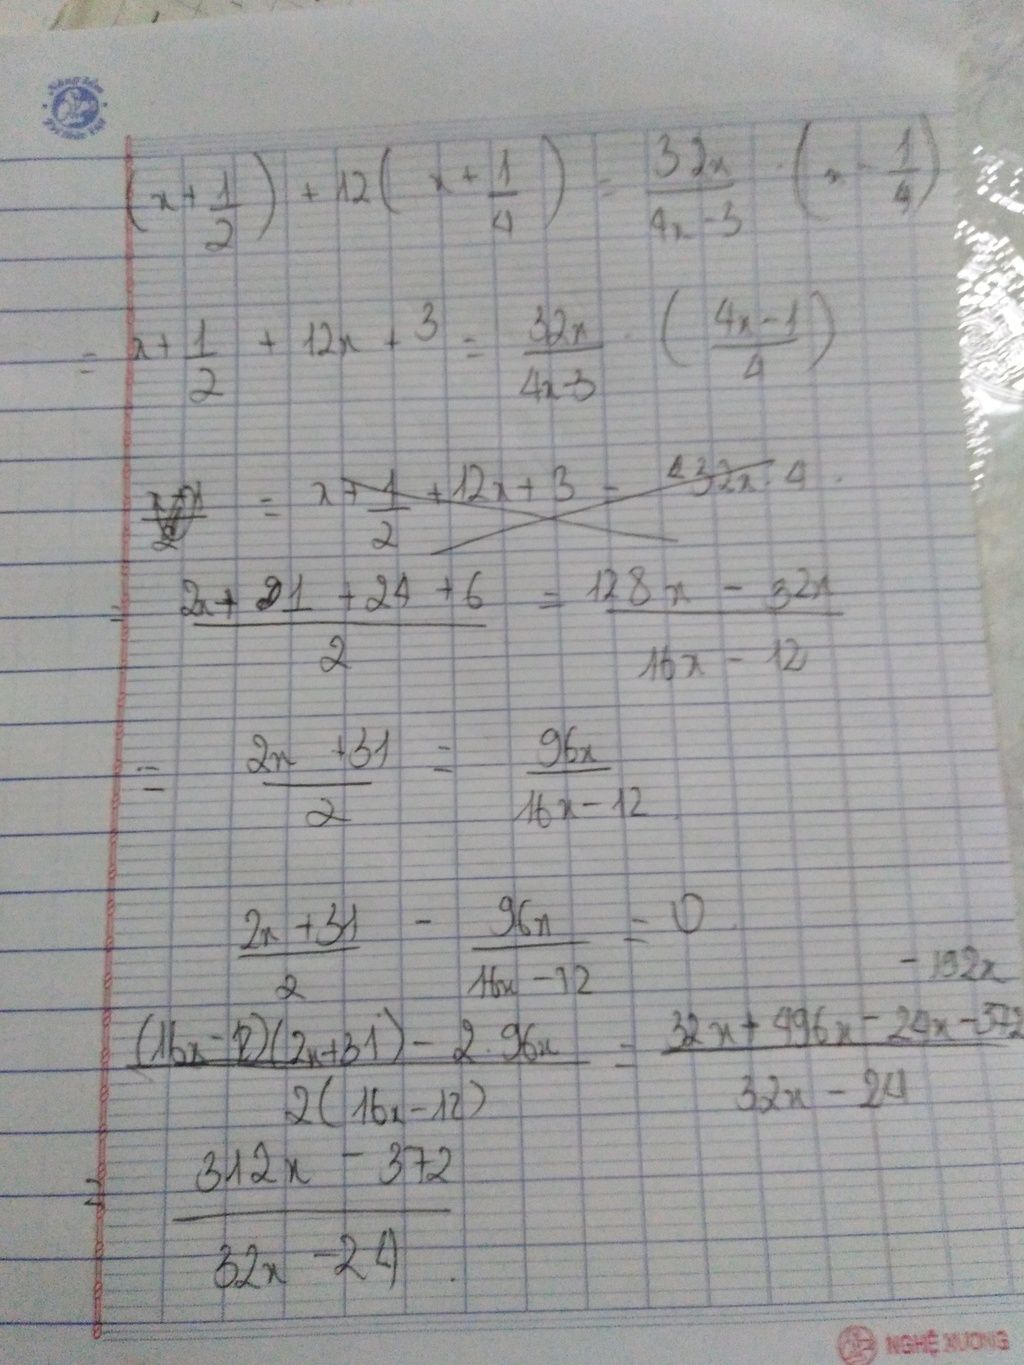 (x + 1/2) + 12(x + 1/4) = 32x/(4x-3) · (x - 1/4)
= x + 1/2 + 12x + 3 = 32x/(4x-3) · ((4x-1)/4)
= x + 1/2 + 12x + 3 = 32x · 4
= (2x + 21 + 24 + 6)/2 = (128x - 32x)/(16x - 12)
= (2x + 31)/2 = 96x/(16x - 12)
(2x + 31)/2 - 96x/(16x - 12) = 0
- 192x
((16x - 12)(2x + 31) - 2.96x)/(2(16x - 12)) = (32x + 496x - 24x - 372)/(32x - 24)
= (312x - 372)/(32x - 24).
NGHỆ XƯƠNG